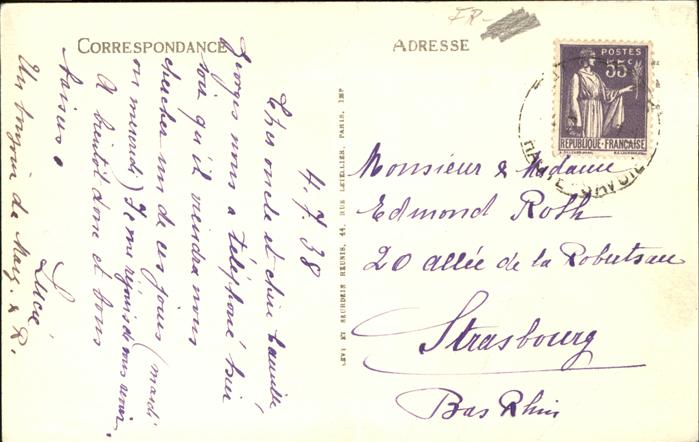 FR-
CORRESPONDANCE
ADRESSE
POSTES
55c
REPUBLIQUE-FRANÇAISE
HAUTE-SAVOIE
4.7.38
Cher oncle et chère tante,
Georges nous a téléphoné hier
soir qu'il viendra nous
chercher un de ces jours (mardi
ou mercredi) Je me réjouis de vous revoir.
A bientôt donc et bons
baisers.
Lucie
Un bonjour de Marg. & R.
LEVY ET NEURDEIN REUNIS, 44, RUE LETELLIER, PARIS, IMP
Monsieur & Madame
Edmond Roth
20 allée de la Robertsau
Strasbourg
Bas Rhin